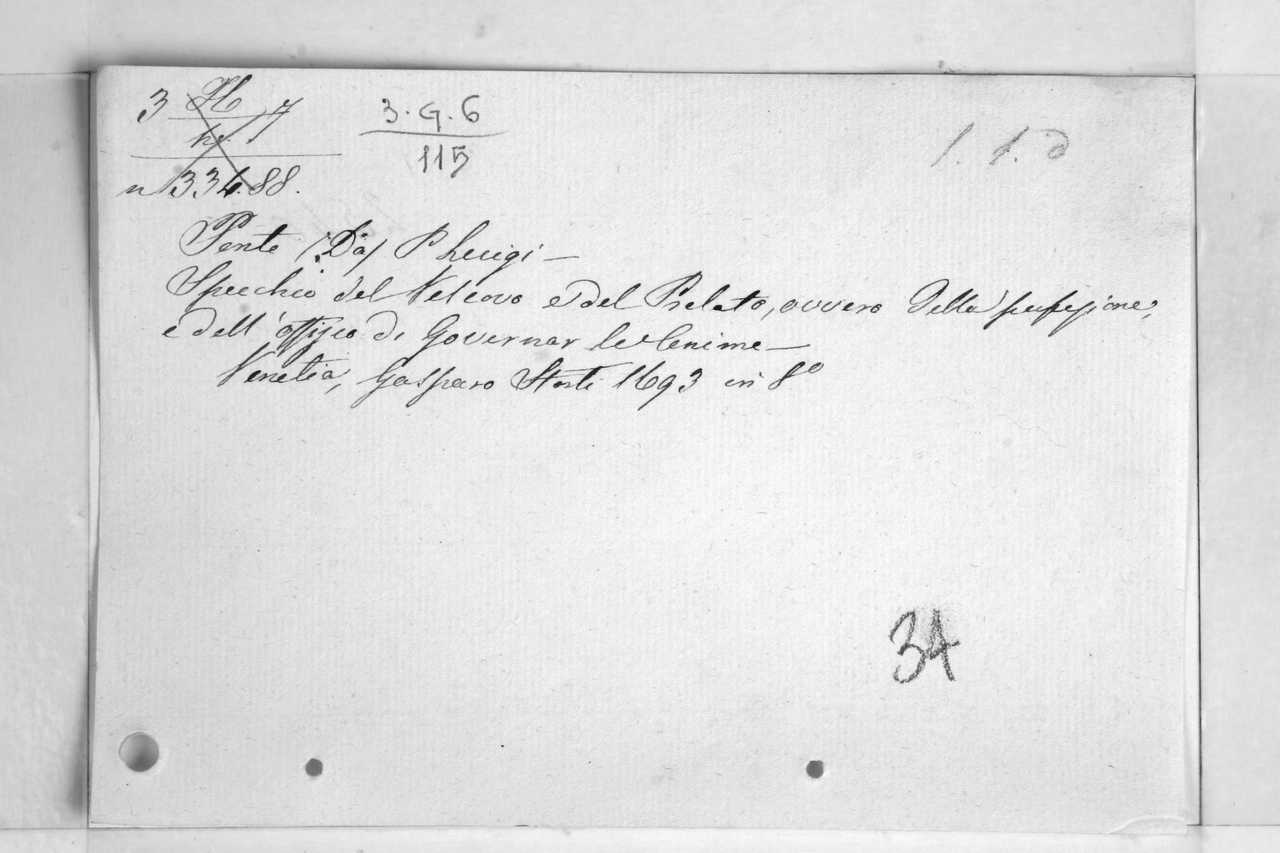 3 H 7
3.G.6
115
n 334.88.
1. 1. d
Ponte /Da/ P Luigi —
Specchio del Vescovo e del Prelato, ovvero Della perfezione,
e dell' offizio di Governar le Anime —
Venetia, Gasparo Storti 1693 in 8º
34